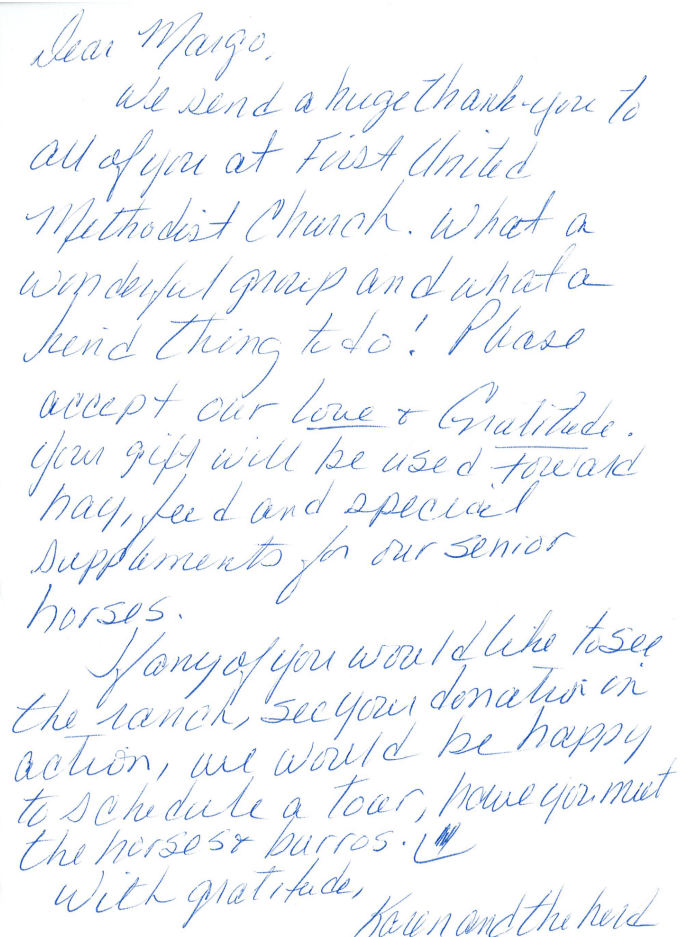 Dear Margo,
We send a huge thank-you to
all of you at First United
Methodist Church. What a
wonderful group and what a
kind thing to do! Please
accept our love & Gratitude.
Your gift will be used toward
hay, feed and special
supplaments for our senior
horses.
If any of you would like to see
the ranch, see your donation in
action, we would be happy
to schedule a tour, have you meet
the horses & burros.
With gratitude,
Karen and the herd